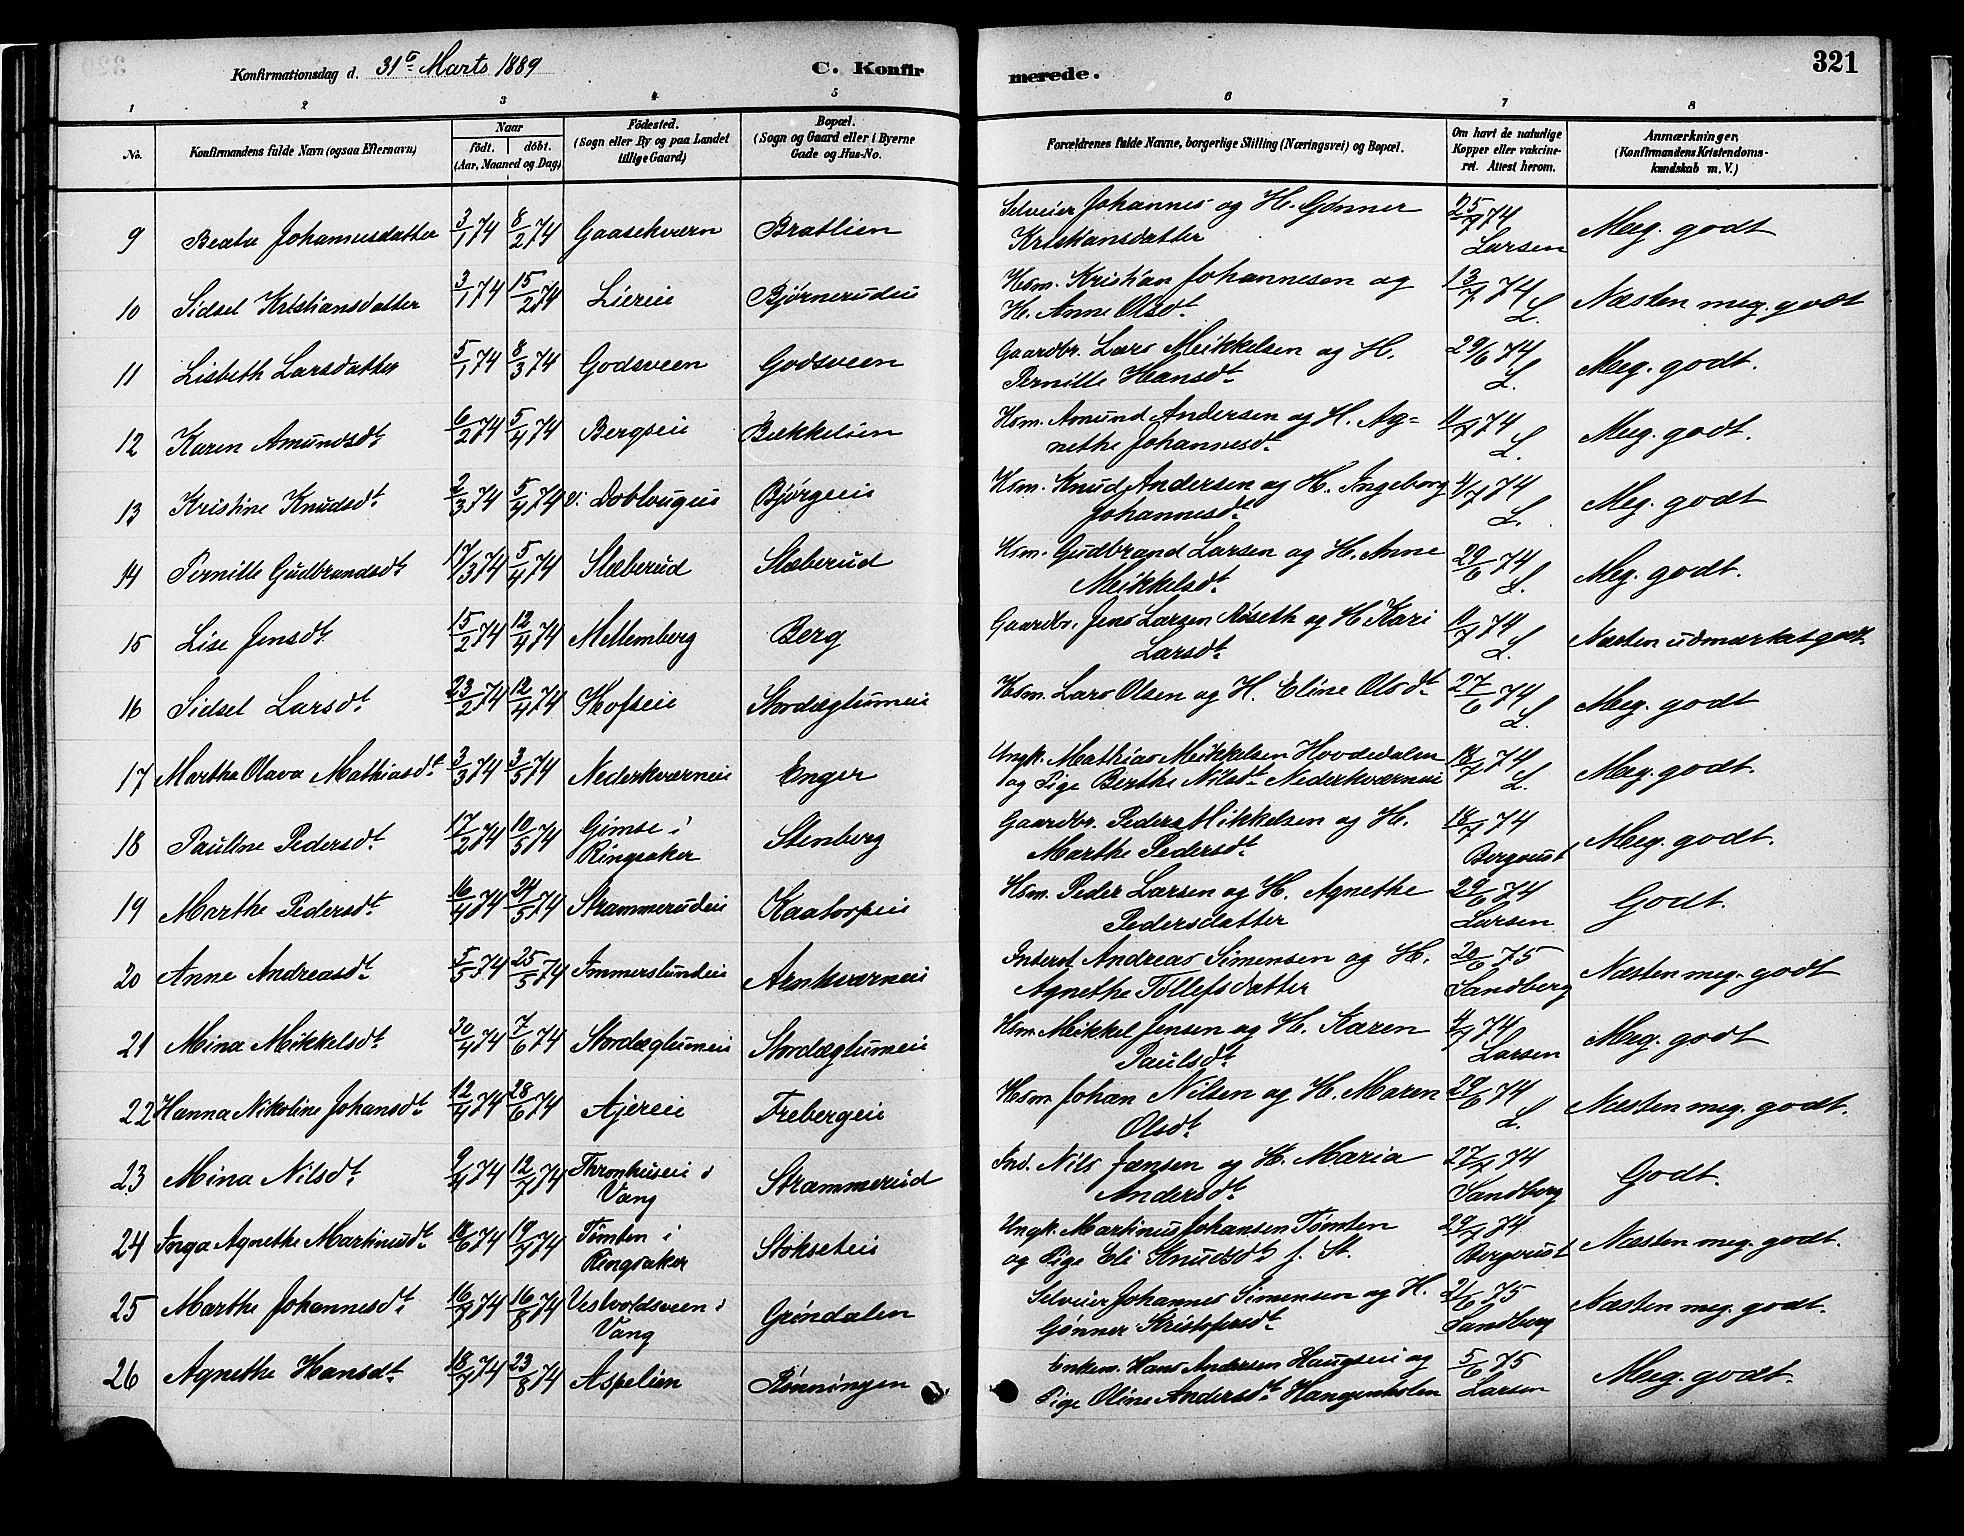 Konfirmationsdag d. 31te Marts 1889 C. Konfirmerede. 321
1 2 3 4 5 6 7 8
No. Konfirmandens fulde Navn (ogsaa Efternavn) Naar født. døbt. (Aar, Maaned og Dag) Födested. (Sogn eller By og paa Landet tillige Gaard) Bopæl. (Sogn og Gaard eller i Byerne Gade og Hus-No. Forældrenes fulde Navne, borgerlige Stilling (Næringsvei) og Bopæl. Om havt de naturlige Kopper eller vakcineret. Attest herom. Anmærkninger. (Konfirmandens Kristendomskundskab m. V.)
9 Beate Johannesdatter 3/1 74 8/2 74 Gaasekværn Bratlien Selveier Johannes og H. Gønner Kristiansdatter 25/7 74 Larsen Meg. godt
10 Sidsel Kristiansdatter 3/1 74 15/2 74 Liereie Bjørnerudeie Hsm. Kristian Johannesen og H. Anne Olsdt. 13/7 74 L. Næsten meg. godt
11 Lisbeth Larsdatter 5/1 74 8/3 74 Godsveen Godsveen Gaardbr. Lars Mikkelsen og H. Pernille Hansdt. 29/6 74 L. Meg. godt.
12 Karen Amundsdt. 6/2 74 5/4 74 Bergseie Bækkelien Hsm. Amund Andersen og H. Agnethe Johannesdt. 4/7 74 L. Meg. godt.
13 Kristine Knudsdt. 2/3 74 5/4 74 v: Doblougeie Bjørgeeie Hsm. Knud Andersen og H. Ingeborg Johannesdt. 4/7 74 L. Meg. godt
14 Pernille Gudbrandsdt. 17/3 74 5/4 74 Slæberud Slæberud Hsm. Gudbrand Larsen og H. Anne Mikkelsdt. 29/6 74 L. Meg. godt.
15 Lise Jensdt. 15/2 74 12/4 74 Mellemberg Berg Gaardbr. Jens Larsen Røseth og H. Kari Larsdt. 9/7 74 L. Næsten udmærket godt.
16 Sidsel Larsdt. 23/2 74 12/4 74 Hofseie Stordæglumeie Hsm. Lars Olsen og H. Eline Olsdt. 27/6 74 L. Meg. godt
17 Marthe Olava Mathiasdt. 3/3 74 3/5 74 Nederkværneie Enger Ungk. Mathias Mikkelsen Hovdedalen og Pige Berthe Nilsdt. Nederkværneie 18/7 74 L. Meg. godt.
18 Pauline Pedersdt. 17/2 74 10/5 74 Gimse i Ringsaker Stenberg Gaardbr. Peder Mikkelsen og H. Marthe Pedersdt. 18/7 74 Bergrust Meg. godt.
19 Marthe Pedersdt. 16/4 74 24/5 74 Strammerudeie Kaatorpeie Hsm. Peder Larsen og H. Agnethe Pedersdatter 29/6 74 Larsen Godt.
20 Anne Andreasdt. 5/5 74 25/5 74 Ammerslundeie Arnkværneie Inderst Andreas Simensen og H. Agnethe Tollefsdatter 20/6 75 Sandberg Næsten meg. godt
21 Mina Mikkelsdt. 30/4 74 7/6 74 Stordæglumeie Stordæglumeie Hsm. Mikkel Jensen og H. Karen Paulsdt. 4/7 74 Larsen Meg. godt
22 Hanna Nikoline Johansdt. 12/4 74 28/6 74 Ajereie Frebergeie Hsm. Johan Nilsen og H. Maren Olsdt. 29/6 74 L. Næsten meg. godt.
23 Mina Nilsdt. 9/4 74 12/7 74 Thronhuseie i Vang Strammerud Ind. Nils Jansen og H. Maria Andersdt. 27/7 74 Sandberg Godt.
24 Inga Agnethe Martinusdt. 18/6 74 19/7 74 Tømten i Ringsaker Stokseteie Ungk. Martinus Johansen Tømten og Pige Eli Knudsdt. f. St. 29/7 74 Bergrust Næsten meg. godt.
25 Marthe Johannesdt. 16/7 74 16/8 74 Vestvoldsveen i Vang Grøndalen Selveier Johannes Simensen og H. Gønner Kristofersdt. 2/6 75 Sandberg Næsten meg. godt.
26 Agnethe Hansdt. 18/7 74 23/8 74 Aspelien Rønningen Enkem. Hans Andersen Haugseie og Pige Oline Andersdt. Hangenholen 5/6 75 Larsen Meg. godt.